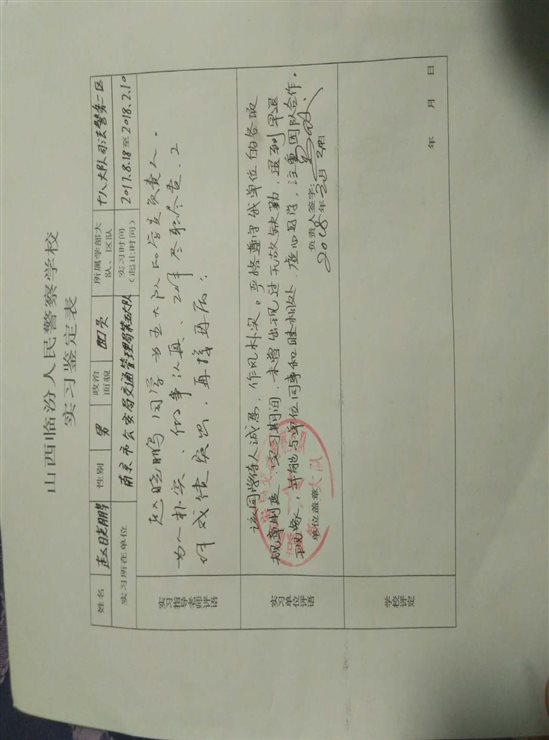 山西临汾人民警察学校
实习鉴定表
姓名 赵晓鹏 性别 男 政治面貌 团员 所属学部大队、区队 十八大队司法警务二区
实习所在单位 南京市公安局交通管理局第五大队 实习时间（起止时间） 2017.8.18至2018.2.10
实习指导老师评语
赵晓鹏同学为五大队的
为人朴实、做事认真、
作成绩突出，再接再厉！
实习单位评语
该同学待人诚恳，作风朴实。严格遵守我单位的各项
规章制度，实习期间，未曾出现过无故缺勤，迟到早退
现象，并能与单位同事和睦相处，虚心学习，注重团队合作。
单位盖章：
负责人签字：
2018年2月
学校评定
年 月 日